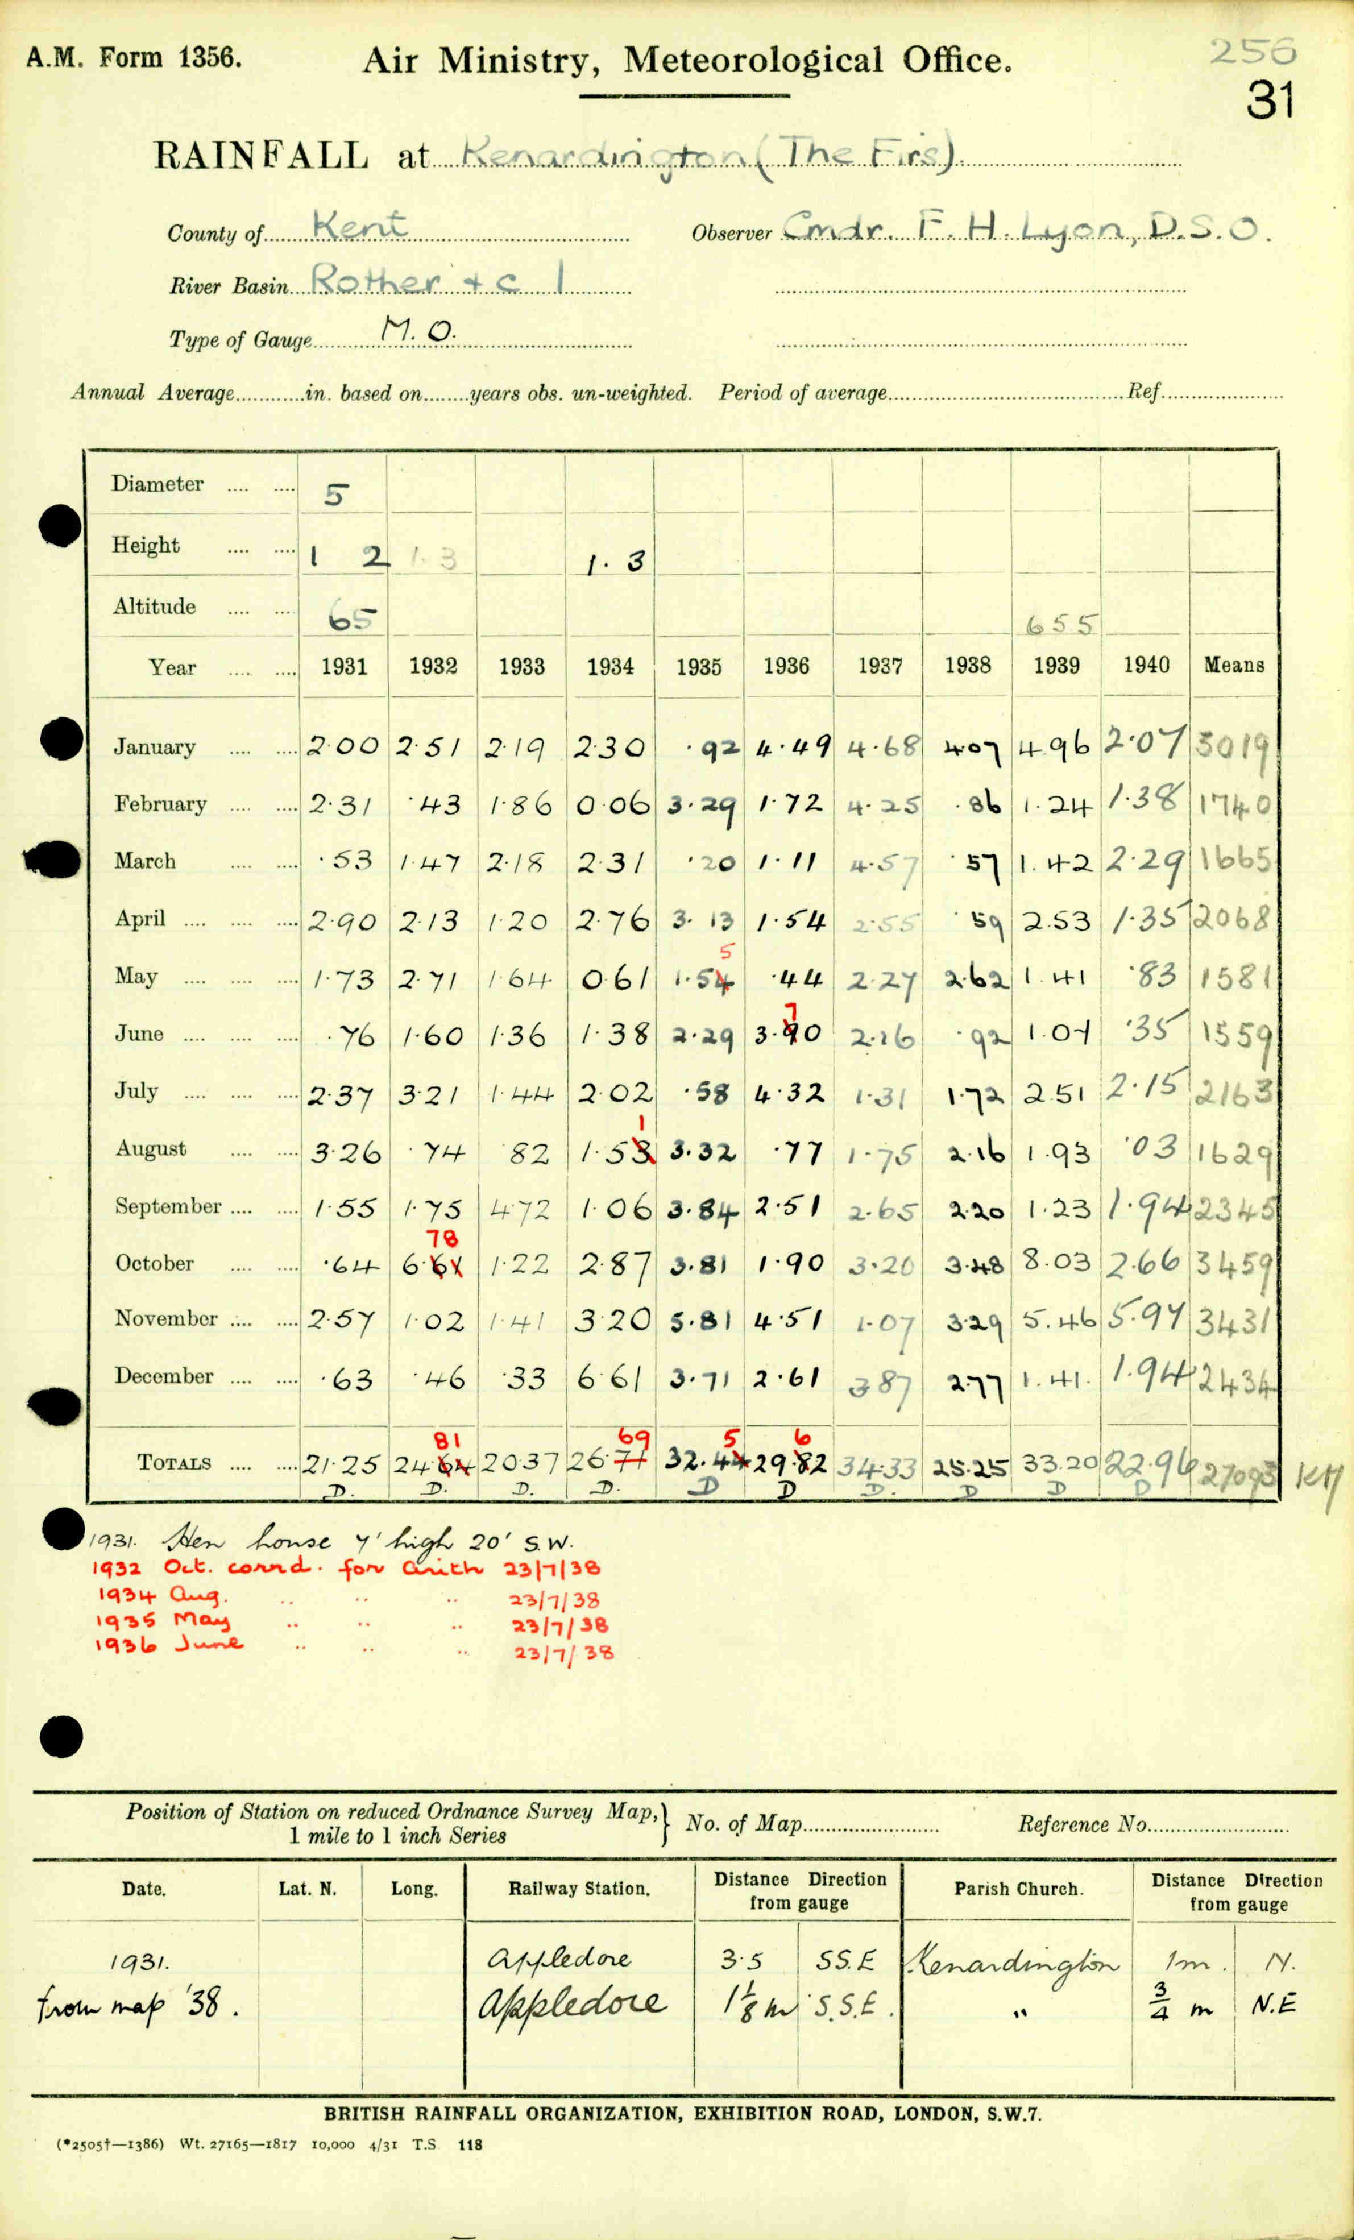 A.M. Form 1356. Air Ministry, Meteorological Office. 256
31
RAINFALL at Kenardington (The Firs)
County of Kent Observer Cmdr. F. H. Lyon, D.S.O.
River Basin Rother + c 1
Type of Gauge M. O.
Annual Average in. based on years obs. un-weighted. Period of average Ref.
Diameter 5
Height 1 2 1.3 1. 3
Altitude 65 655
Year 1931 1932 1933 1934 1935 1936 1937 1938 1939 1940 Means
January 2.00 2.51 2.19 2.30 .92 4.49 4.68 4.07 4.96 2.07 3019
February 2.31 .43 1.86 0.06 3.29 1.72 4.25 .86 1.24 1.38 1740
March .53 1.47 2.18 2.31 .20 1.11 4.57 .57 1.42 2.29 1665
April 2.90 2.13 1.20 2.76 3.13 1.54 2.55 .59 2.53 1.35 2068
5
May 1.73 2.71 1.64 0.61 1.54 .44 2.27 2.62 1.41 .83 1581
7
June .76 1.60 1.36 1.38 2.29 3.90 2.16 .92 1.07 .35 1559
July 2.37 3.21 1.44 2.02 .58 4.32 1.31 1.72 2.51 2.15 2163
1
August 3.26 .74 .82 1.53 3.32 .77 1.75 2.16 1.93 .03 1629
September 1.55 1.75 4.72 1.06 3.84 2.51 2.65 2.20 1.23 1.94 2345
78
October .64 6.61 1.22 2.87 3.81 1.90 3.20 3.48 8.03 2.66 3459
November 2.57 1.02 1.41 3.20 5.81 4.51 1.07 3.29 5.46 5.97 3431
December .63 .46 .33 6.61 3.71 2.61 3.87 2.77 1.41. 1.94 2434
81 69 5 6
TOTALS 21.25 24.64 20.37 26.71 32.44 29.82 34.33 25.25 33.20 22.96 27093 KM
D. D. D. D. D D D. D D D
1931. Hen house 7' high 20' S.W.
1932 Oct. corrd. for arith 23/7/38
1934 Aug. .. .. .. 23/7/38
1935 May .. .. .. 23/7/38
1936 June .. .. .. 23/7/38
Position of Station on reduced Ordnance Survey Map,} No. of Map Reference No.
1 mile to 1 inch Series
Date. Lat. N. Long. Railway Station. Distance Direction from gauge Parish Church. Distance Direction from gauge
1931. Appledore 3.5 SS.E Kenardington 1m. N.
from map '38. Appledore 1 1/8 m S.S.E. " 3/4 m N.E
BRITISH RAINFALL ORGANIZATION, EXHIBITION ROAD, LONDON, S.W.7.
(*2505†—1386) Wt. 27165—1817 10,000 4/31 T.S 118